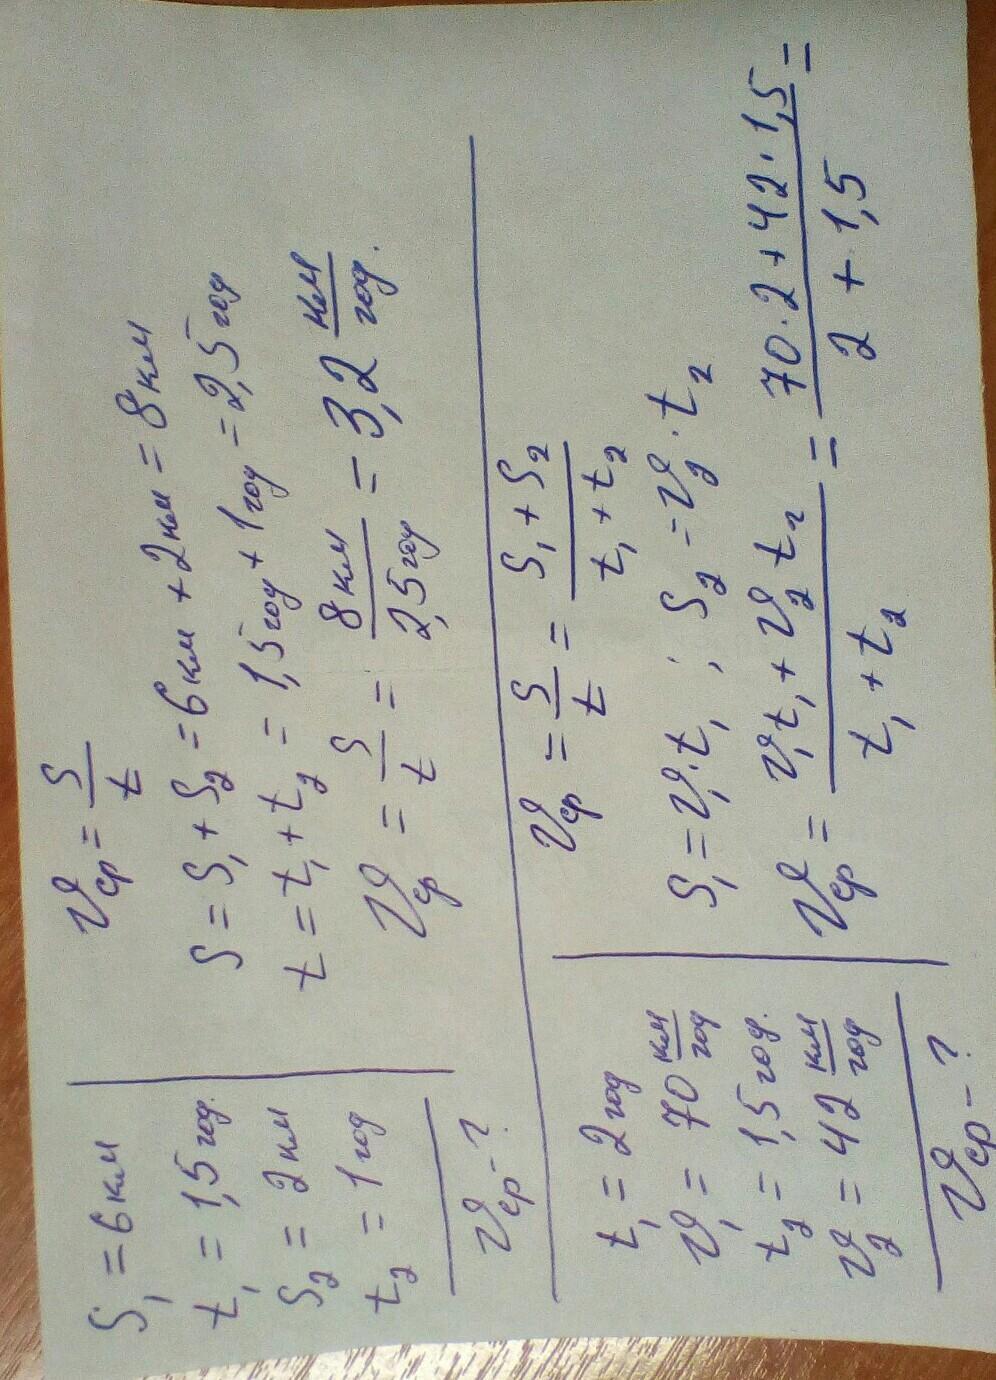 S₁ = 6 км
t₁ = 1,5 год.
S₂ = 2 км
t₂ = 1 год
𝓥ср - ?
𝓥ср = S/t
S = S₁ + S₂ = 6 км + 2 км = 8 км
t = t₁ + t₂ = 1,5 год + 1 год = 2,5 год
𝓥ср = S/t = 8 км/2,5 год = 3,2 км/год.
t₁ = 2 год
𝓥₁ = 70 км/год
t₂ = 1,5 год.
𝓥₂ = 42 км/год
𝓥ср - ?
𝓥ср = S/t = (S₁ + S₂)/(t₁ + t₂)
S₁ = 𝓥₁ · t₁ ; S₂ = 𝓥₂ · t₂
𝓥ср = (𝓥₁t₁ + 𝓥₂t₂)/(t₁ + t₂) = (70 · 2 + 42 · 1,5)/(2 + 1,5) =